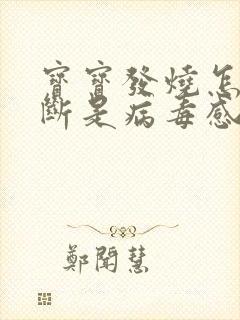 寶寶發燒怎
斷是病毒感
鄭聞慧